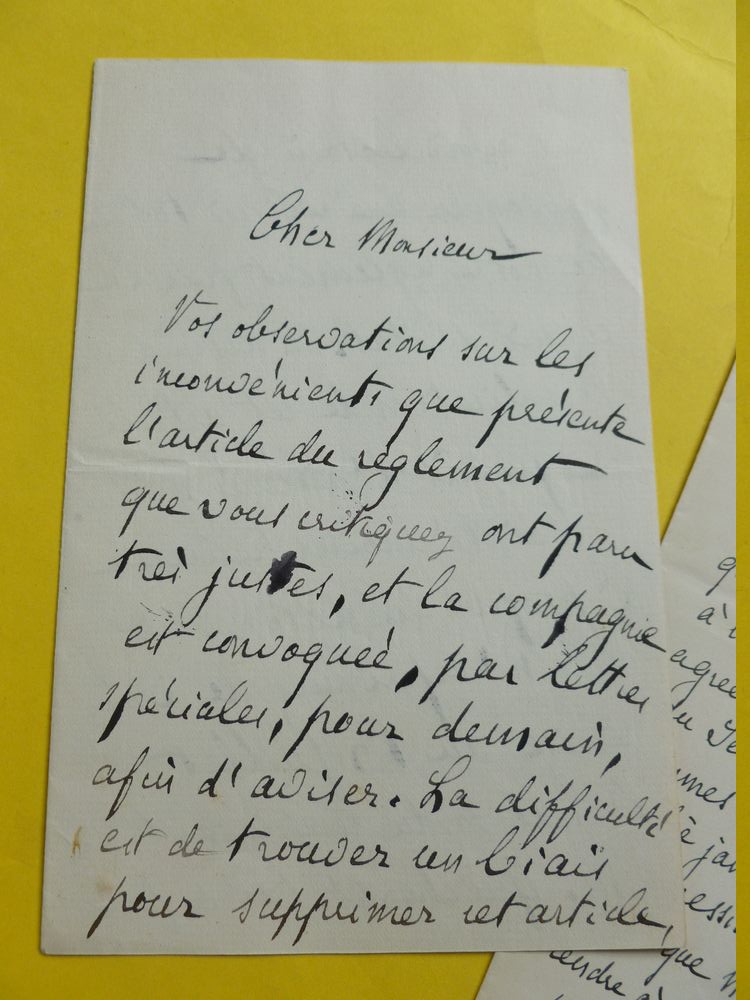 Cher Monsieur
Vos observations sur les
inconvénients que présente
l'article du règlement
que vous critiquez ont paru
très justes, et la compagnie
est convoquée, par lettres
spéciales, pour demain,
afin d'aviser. La difficulté
est de trouver un biais
pour supprimer cet article,
q
à
agré
mes
à jam
que
endre à